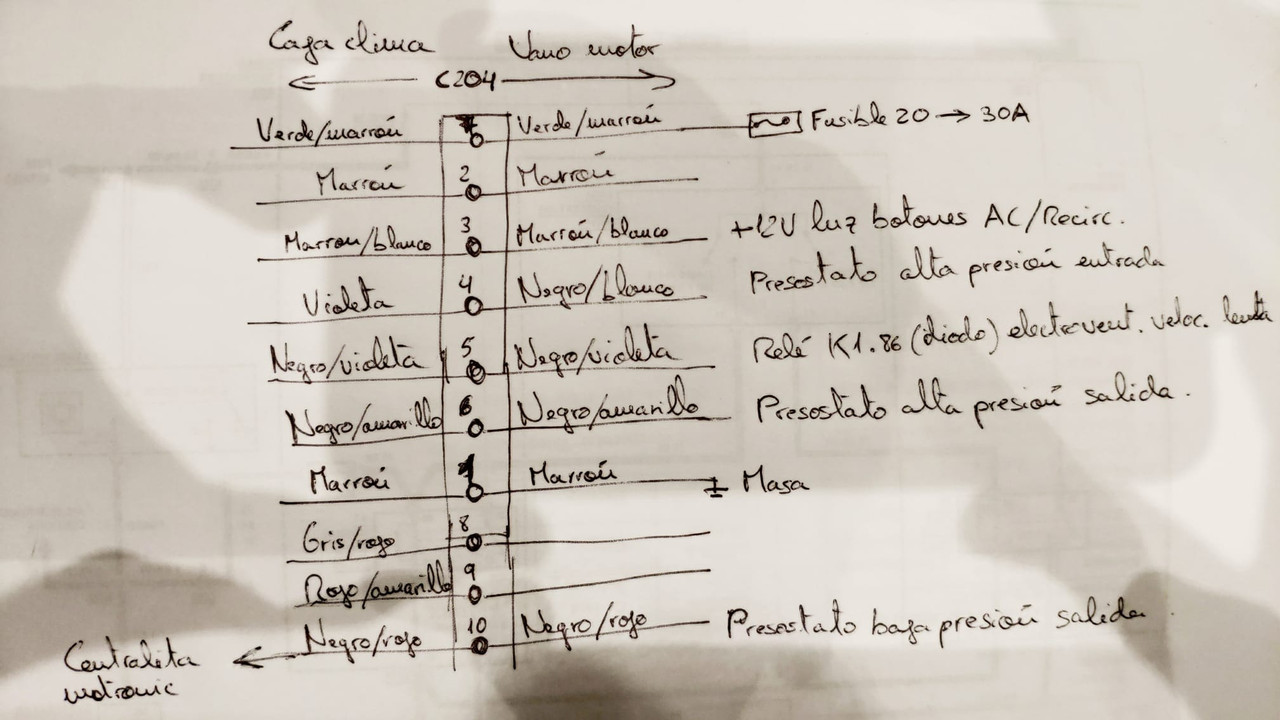 Caja clima Vano motor
C204
Verde/marrón 1 Verde/marrón Fusible 20 → 30A
Marrón 2 Marrón
Marrón/blanco 3 Marrón/blanco +12V luz botones AC/Recirc.
Violeta 4 Negro/blanco Presostato alta presión entrada
Negro/violeta 5 Negro/violeta Relé K1.86 (diodo) electrovent. veloc. lenta
Negro/amarillo 6 Negro/amarillo Presostato alta presión salida.
Marrón Marrón Masa
Gris/rojo 8
Rojo/amarillo 9
Negro/rojo 10 Negro/rojo Presostato baja presión salida.
Centralita
motronic